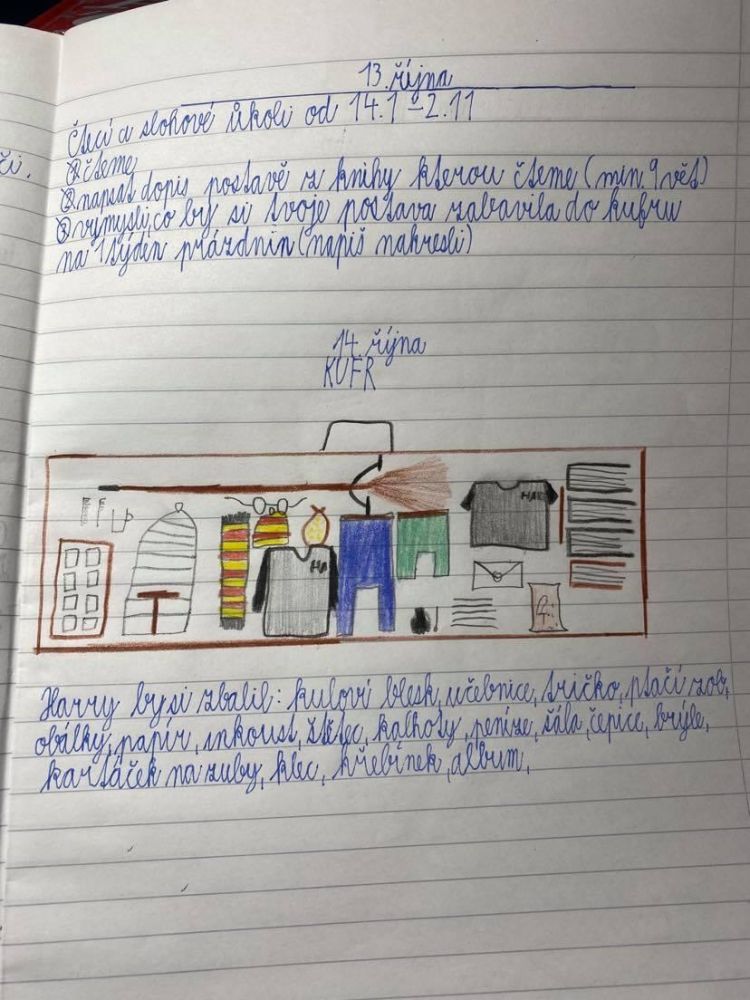 13. října
Čtecí a slohové úkoli od 14.10-2.11
či.
① čteme
② napsat dopis postavě z knihy kterou čteme (min. 9 vět)
③ vymysli, co by si tvoje postava zabavila do kufru
na 1 týden prázdnin (napiš nakresli)
14. října
KUFR
HAR
HA
Harry by si zbalil: kulový blesk, učebnice, tričko, ptačí zob,
obálky, papír, inkoust, štětec, kalhoty, peníze, šála, čepice, brýle,
kartáček na zuby, klec, hřebínek, album,